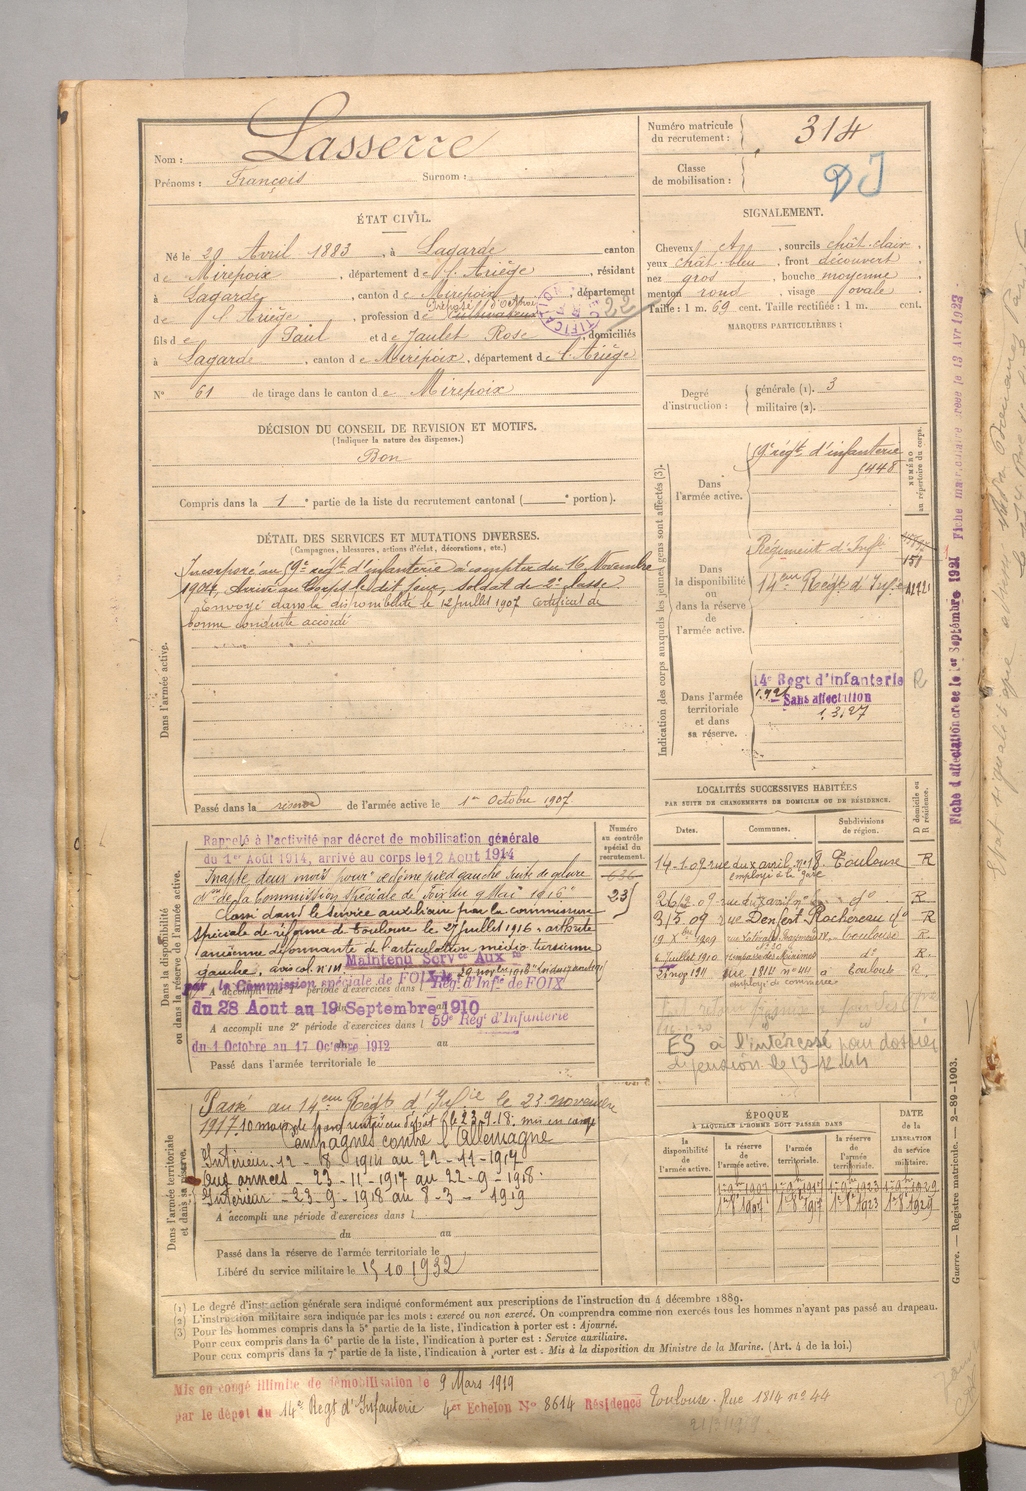 Nom : Lasserre
Prénoms : François Surnom :
ÉTAT CIVIL.
Né le 20 Avril 1883, à Lagarde canton
de Mirepoix, département de l'Ariège, résidant
à Lagarde, canton de Mirepoix, département
de l'Ariège, profession de Cultivateur
fils de Paul et de Jaulet Rose, domiciliés
à Lagarde, canton de Mirepoix, département de l'Ariège
N° 61 de tirage dans le canton de Mirepoix
DÉCISION DU CONSEIL DE REVISION ET MOTIFS.
(Indiquer la nature des dispenses.)
Bon
Compris dans la 1e partie de la liste du recrutement cantonal ( e portion).
DÉTAIL DES SERVICES ET MUTATIONS DIVERSES.
(Campagnes, blessures, actions d'éclat, décorations, etc.)
Dans l'armée active.
Incorporé au 59e régt d'infanterie à compter du 16 Novembre
1904, Arrivé au Corps le dit jour, soldat de 2e classe
Envoyé dans la disponibilité le 12 juillet 1907 Certificat de
bonne conduite accordé
Passé dans la réserve de l'armée active le 1er Octobre 1907
Dans la disponibilité
ou dans la réserve de l'armée active.
Numéro
au contrôle
spécial du
recrutement.
636
23
Rappelé à l'activité par décret de mobilisation générale
du 1er Août 1914, arrivé au corps le 12 Aout 1914
Inapte deux mois pour oedème pied gauche suite de gelure
don de la Commission Spéciale de Foix du 9 Mai 1916
Classé dans le service auxiliaire par la commission
spéciale de réforme de Toulouse le 27 juillet 1916 arthrite
ancienne déformante de l'articulation médio tarsienne
gauche, avis col. n°
Maintenu Servce Auxre
par la Commission spéciale de FOIX le
A accompli une 1e période d'exercices dans l Rég. d'Infie de FOIX
du 28 Aout au 19 Septembre 1910
A accompli une 2e période d'exercices dans l 59e Régt d'Infanterie
du 1 Octobre au 17 Octobre 1912 au
Passé dans l'armée territoriale le
Dans l'armée territoriale
et dans sa réserve.
Passé au 14eme Régt d'Infie le 23 novembre
1917
Campagnes contre l'Allemagne
Intérieur 12 - 8 - 1914 au 22 - 11 - 1917
Aux armées - 23 - 11 - 1917 au 22 - 9 - 1918
Intérieur - 23 - 9 - 1918 au 8 - 3 - 1919
A accompli une période d'exercices dans l
du au
Passé dans la réserve de l'armée territoriale le
Libéré du service militaire le 15 10 1932
Numéro matricule
du recrutement : 314
Classe
de mobilisation :
SIGNALEMENT.
Cheveux , sourcils chât. clair,
yeux chât. bleu, front découvert
nez gros, bouche moyenne
menton rond, visage ovale.
Taille : 1 m. 69 cent. Taille rectifiée : 1 m. cent.
MARQUES PARTICULIÈRES :
22
Degré
d'instruction :
générale (1). 3
militaire (2).
Indication des corps auxquels les jeunes gens sont affectés (3).
NUMÉRO
au répertoire du corps.
Dans
l'armée active.
59e régt d'infanterie
5448
Dans
la disponibilité
ou
dans la réserve
de
l'armée active.
Régiment d'Infie
151
14eme Régt d'Infie
Dans l'armée
territoriale
et dans
sa réserve.
14e Regt d'Infanterie R
Sans affectation
1.3.27
LOCALITÉS SUCCESSIVES HABITÉES
PAR SUITE DE CHANGEMENTS DE DOMICILE OU DE RÉSIDENCE.
Dates. Communes. Subdivisions
de région. D domicile ou
R résidence.
14-1-09 rue du xavril, n° 8 Toulouse R
employé à la gare
26/2.09 rue du xavril n° 6 do R
3/5.09 rue Denfert Rochereau do R
Toulouse R
6 Juillet 1910 do R.
nov 1911 rue 1814 n° 44 à Toulouse R
employé de commerce
ES à l'intéressé pour dossier
de pension le
ÉPOQUE
À LAQUELLE L'HOMME DOIT PASSER DANS
la
disponibilité
de
l'armée active.
la réserve
de
l'armée active.
l'armée
territoriale.
la réserve
de
l'armée
territoriale.
DATE
de la
LIBÉRATION
du service
militaire.
1er 8bre 1907 1er 8bre 1917 1er 8bre 1923 1er 8bre 1929
Fiche d'affectation créée le 1er Septembre 1921 Fiche matriculaire créée le 13 Avr 1922
Guerre. — Registre matricule. — 2-89-1903.
(1) Le degré d'instruction générale sera indiqué conformément aux prescriptions de l'instruction du 4 décembre 1889.
(2) L'instruction militaire sera indiquée par les mots : exercé ou non exercé. On comprendra comme non exercés tous les hommes n'ayant pas passé au drapeau.
(3) Pour les hommes compris dans la 5e partie de la liste, l'indication à porter est : Ajourné.
Pour ceux compris dans la 6e partie de la liste, l'indication à porter est : Service auxiliaire.
Pour ceux compris dans la 7e partie de la liste, l'indication à porter est : Mis à la disposition du Ministre de la Marine. (Art. 4 de la loi.)
Mis en congé illimité de démobilisation le 9 Mars 1919
par le dépôt du 14e Regt d'Infanterie 4er Echelon No 8614 Résidence Toulouse. Rue 1814 n° 44